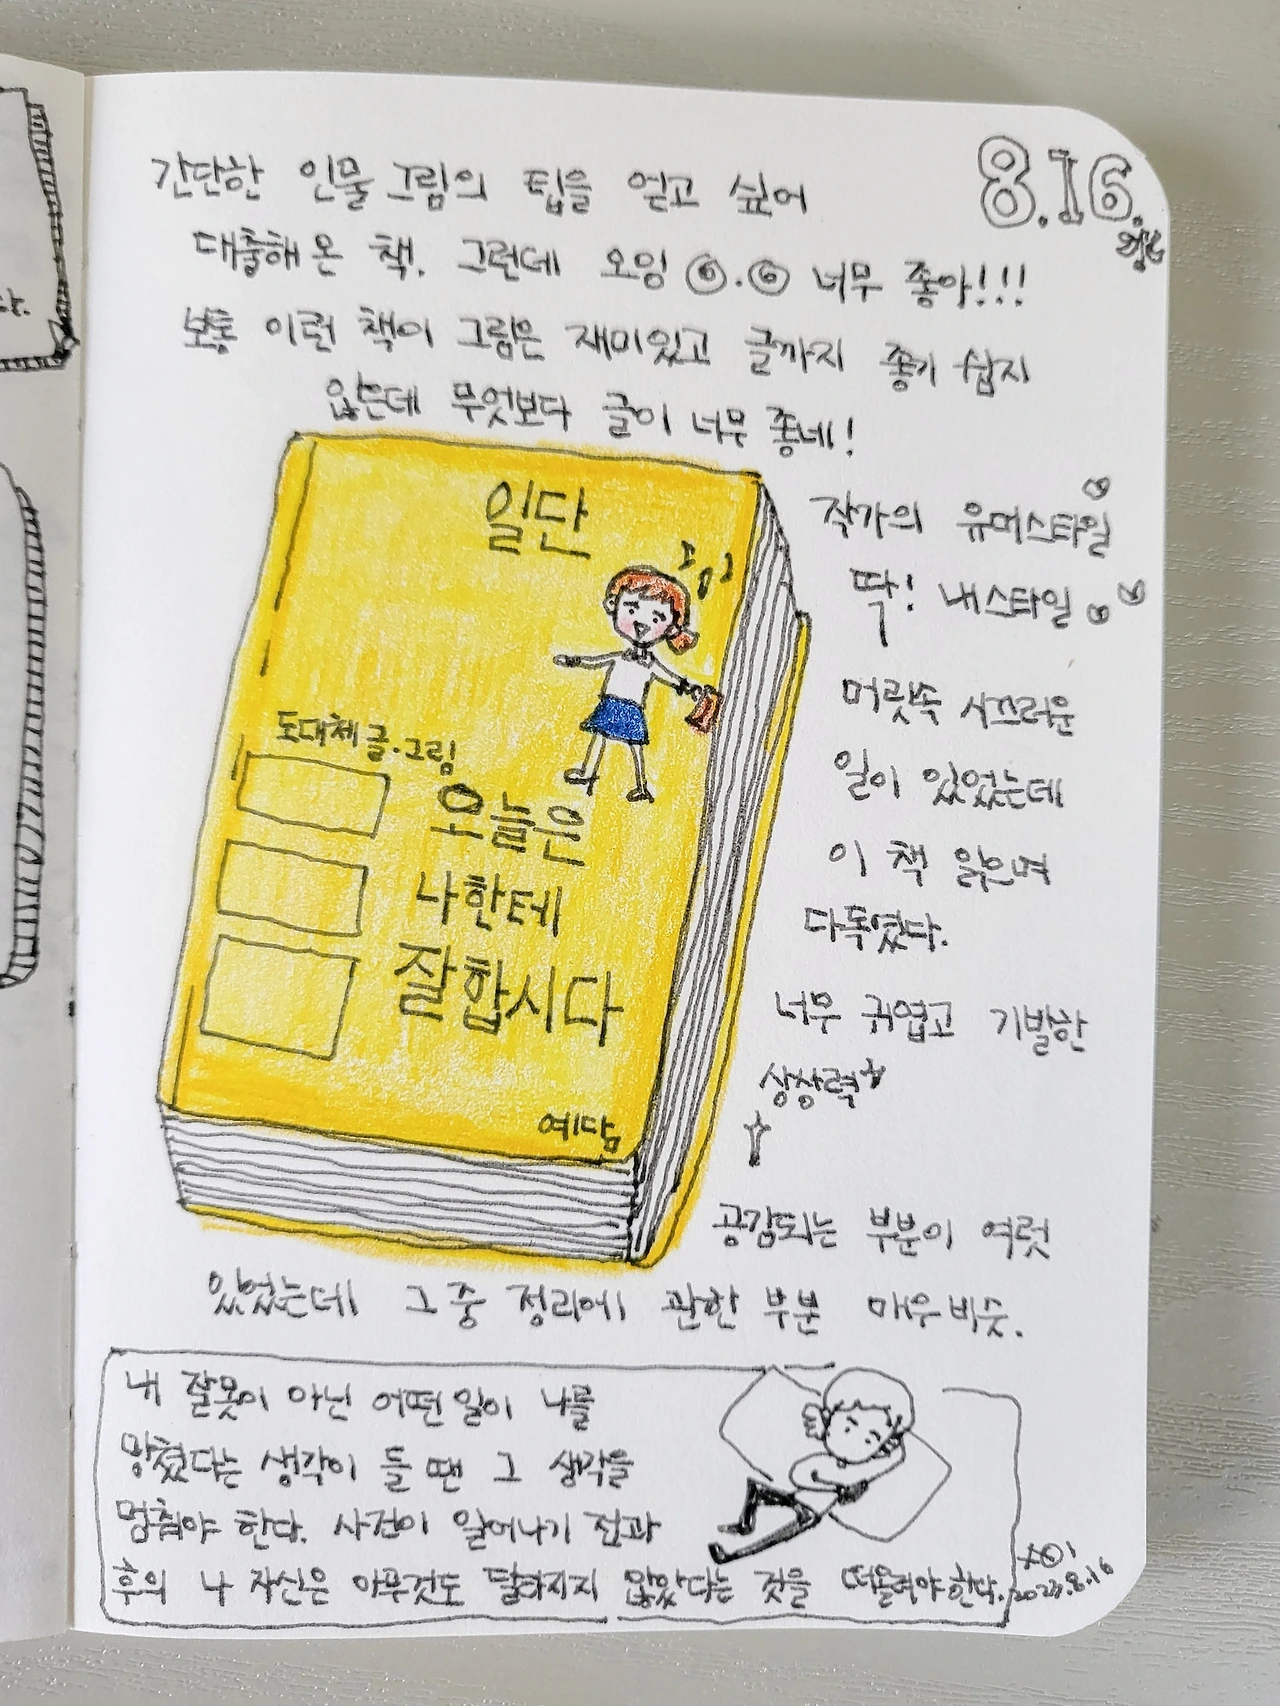 8.16.
간단한 인물 그림의 팁을 얻고 싶어
대출해 온 책. 그런데 오잉 ⊙.⊙ 너무 좋아!!!
보통 이런 책이 그림은 재미있고 글까지 좋기 쉽지
않은데 무엇보다 글이 너무 좋네!
일단
도대체 글.그림
오늘은
나한테
잘합시다
예담
작가의 유머스타일
딱! 내스타일
머릿속 시끄러운
일이 있었는데
이 책 읽으며
다독였다.
너무 귀엽고 기발한
상상력
공감되는 부분이 여럿
있었는데 그 중 정리에 관한 부분 매우 비슷.
내 잘못이 아닌 어떤 일이 나를
망쳤다는 생각이 들 땐 그 생각을
멈춰야 한다. 사건이 일어나기 전과
후의 나 자신은 아무것도 달라지지 않았다는 것을 떠올려야 한다.
2023.8.16